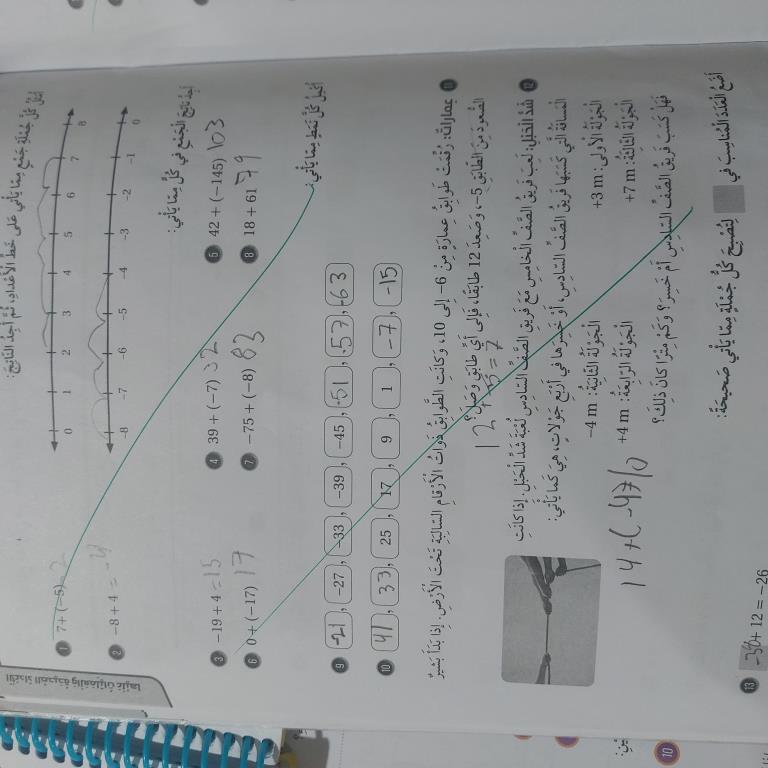 أُمَثِّلُ كُلَّ جُمْلَةِ جَمْعٍ مِمّا يَأْتي عَلى خَطِّ الْأَعْدادِ، ثُمَّ أَجِدُ النّاتِجَ:
1 7 + (−5) = 2
0 1 2 3 4 5 6 7 8
2 −8 + 4 =
−8 −7 −6 −5 −4 −3 −2 −1 0
أَجِدُ ناتِجَ الْجَمْعِ في كُلٍّ مِمّا يَأْتي:
3 −19 + 4 = 15
4 39 + (−7) 32
5 42 + (−145) 103
6 0 + (−17) 17
7 −75 + (−8) 83
8 18 + 61 79
أُكْمِلُ كُلَّ نَمَطٍ مِمّا يَأْتي:
9 -21 , −27 , −33 , −39 , −45 , -51 , -57 , -63
10 41 , 33 , 25 , 17 , 9 , 1 , -7 , -15
11 عِمارَةٌ: رُقِّمَتْ طَوابِقُ عِمارَةٍ مِنْ 6− إِلى 10، وَكانَتِ الطَّوابِقُ ذَواتُ الْأَرْقامِ السّالِبَةِ تَحْتَ الْأَرْضِ. إِذا بَدَأَ بَشيرٌ
الصُّعودَ مِنَ الطّابَقِ 5−، وَصَعِدَ 12 طابَقًا، فَإِلى أَيِّ طابَقٍ وَصَلَ؟
12 + -5 = 7
12 شَدُّ الْحَبْلِ: لَعِبَ فَريقُ الصَّفِّ الْخامِسِ مَعَ فَريقِ الصَّفِّ السّادِسِ لُعْبَةَ شَدِّ الْحَبْلِ. إِذا كانَتِ
الْمَسافَةُ الَّتي كَسَبَها فَريقُ الصَّفِّ السّادِسِ، أَوْ خَسِرَها في أَرْبَعِ جَوْلاتٍ، هِيَ كَما يَأْتي:
الْجَوْلَةُ الْأولى: +3 m الْجَوْلَةُ الثّانِيَةُ: −4 m
الْجَوْلَةُ الثّالِثَةُ: +7 m الْجَوْلَةُ الرّابِعَةُ: +4 m
فَهَلْ كَسَبَ فَريقُ الصَّفِّ السّادِسِ أَمْ خَسِرَ؟ وَكَمْ مِتْرًا كانَ ذلِكَ؟
14 + (-4) 10
أَضَعُ الْعَدَدَ الْمُناسِبَ في لِتُصْبِحَ كُلُّ جُمْلَةٍ مِمّا يَأْتي صَحيحَةً:
13 -38 + 12 = −26
10